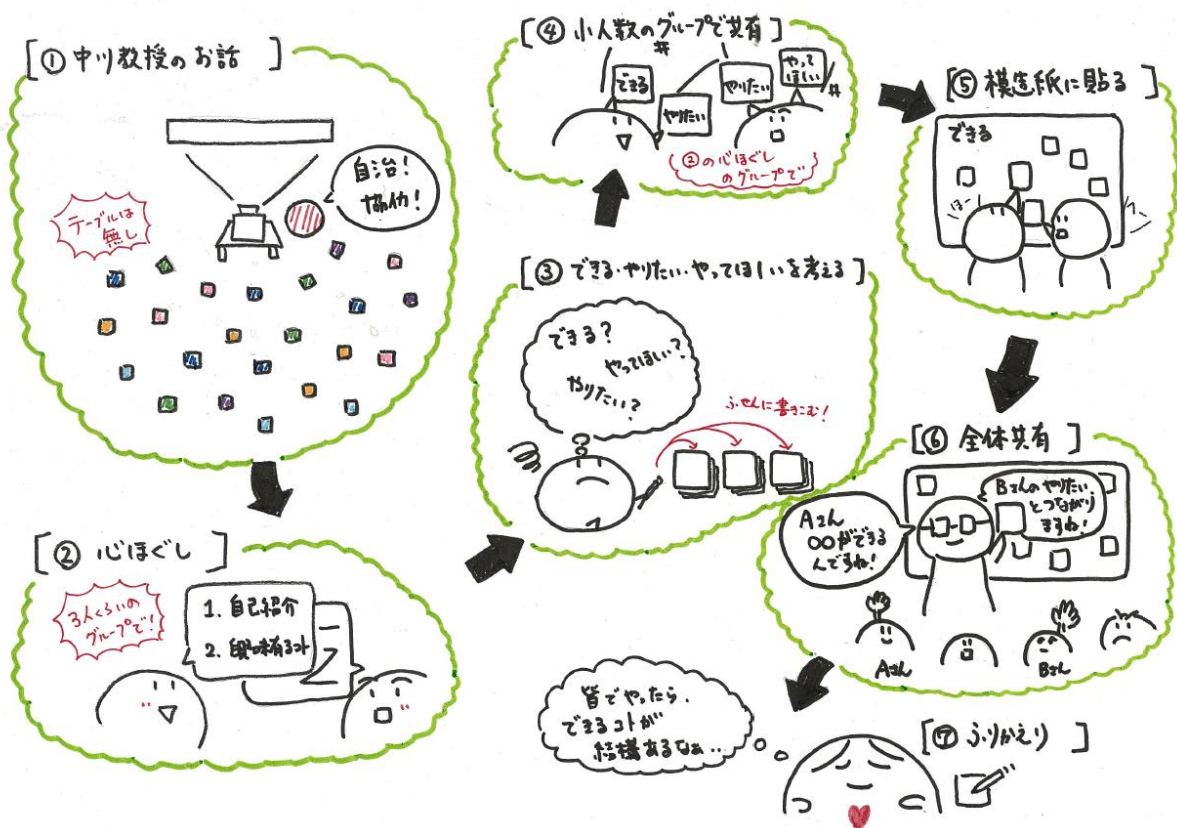 [① 中川教授のお話 ]
自治!
協働!
テーブルは
無し
[② 心ほぐし ]
3人くらいの
グループで!
1. 自己紹介
2. 興味有るコト
[③ できる・やりたい・やってほしいを考える]
できる?
やってほしい?
やりたい?
ふせんに書きこむ!
[④ 小人数のグループで共有 ]
できる
やりたい
やりたい
やって
ほしい
②の心ほぐし
のグループで
[⑤ 模造紙に貼る ]
できる
ほー
[⑥ 全体共有 ]
Aさん
○○ができる
んですね!
Bさんのやりたい
とつながり
ますね!
Aさん
Bさん
[⑦ ふりかえり ]
皆でやったら、
できるコトが
結構あるなぁ..